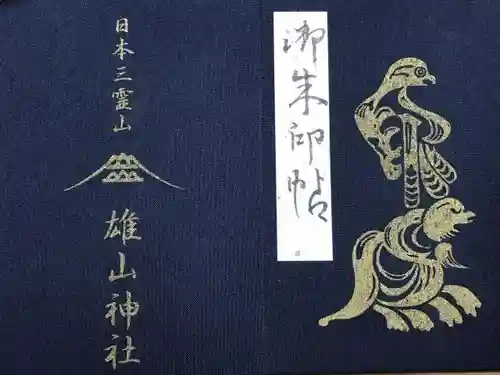 御朱印帖
日本三霊山
雄山神社